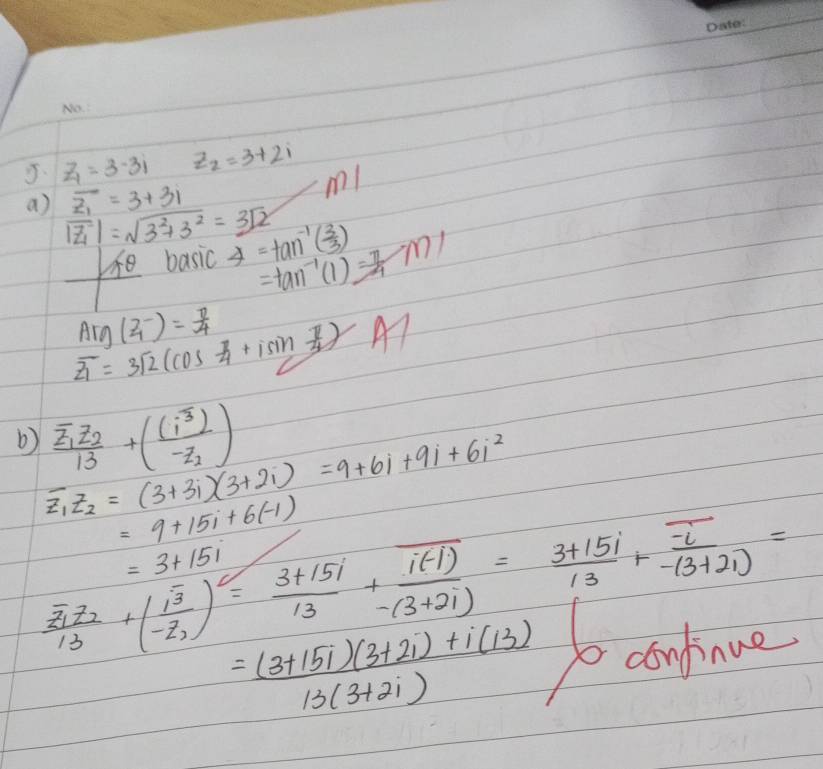 Date:
No.:
5. z₁ = 3-3i z₂ = 3+2i
a) z̅₁ = 3+3i
|z̅₁| = √(3²+3²) = 3√2 M1
θ basic ∡ = tan⁻¹(3/3) M1
= tan⁻¹(1) = π/4
Arg(z̅₁) = π/4
z̅₁ = 3√2 (cos π/4 + i sin π/4) A1
b) z̅₁z₂/13 + ((i̅³)/-z₂)
z̅₁z₂ = (3+3i)(3+2i) = 9+6i+9i+6i²
= 9+15i+6(-1)
= 3+15i
z̅₁z₂/13 + (i̅³/-z₂) = (3+15i)/13 + i(-1)/-(3+2i) = (3+15i)/13 + -i/-(3+2i) =
= ((3+15i)(3+2i)+i(13))/(13(3+2i))
continue